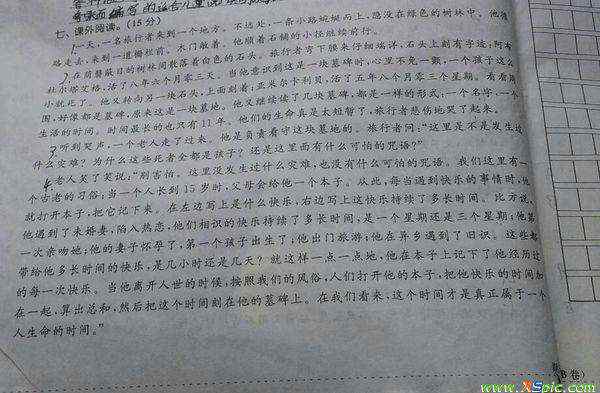 七、课外阅读。(15分)
1一天,一名旅行者来到一个地方。不远处,一条小路蜿蜒向上,隐没在绿色的树林中。他顺
路走去,来到一道栅栏前。木门敞着。他顺着石铺的小径继续前行。
2在荫翳蔽日的树林间散落着白色的石头。旅行者弯下腰来仔细端详,石头上刻有字迹:阿布
杜尔塔艾格,活了八年六个月零三天。当他意识到这是一块墓碑时,心里不免一颤,一个孩子这么
小就死了。他又转向另一块石头,上面刻着:亚米尔卡利贝,活了五年八个月零三个星期。看看周
围,好像都是墓碑,原来这是一块墓地。他又继续读了几块墓碑,都是一样的形式:一个名字,一个
生活的时间。时间最长的也只有11年。他们的生命真是太短暂了,旅行者悲伤地哭了起来。
3听到哭声,一个老人走了过来。他是负责看守这块墓地的。旅行者问:“这里是不是发生过
什么灾难?为什么这些死者全都是孩子?还是这里面有什么可怕的咒语?”
4老人笑了笑说:“别害怕。这里没发生过什么灾难,也没有什么可怕的咒语。我们这里有一
个古老的习俗:当一个人长到15岁时,父母会给他一个本子。从此,每当遇到快乐的事情时,他
就打开本子,把它记下来。在左边写上是什么快乐,右边写上这快乐持续了多长时间。比方说,
他遇到了未婚妻,陷入热恋:他们相识的快乐持续了多长时间,是一个星期还是三个星期;他第
一次亲吻她;他的妻子怀孕了;第一个孩子出生了;他出门旅游;他在异乡遇到了旧识。这些都
带给他多长时间的快乐,是几小时还是几天?就这样一点一点地,他在本子上记下了他经历过
的每一次快乐。当他离开人世的时候,按照我们的风俗,人们打开他的本子,把他快乐的时间加
在一起,算出总和,然后把这个时间刻在他的墓碑上。在我们看来,这个时间才是真正属于一个
人生命的时间。”
B卷)
www.XSpic.com